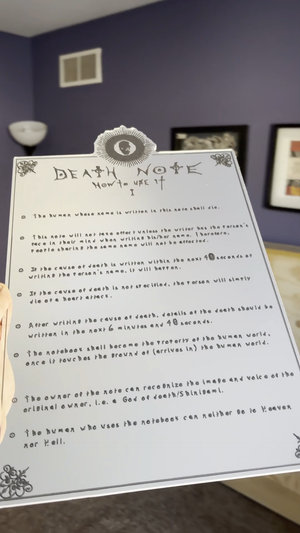 DEATH NOTE
HOW TO USE IT
I
The human whose name is written in this note shall die.
This note will not take effect unless the writer has the person's
face in their mind when writing his/her name. Therefore,
people sharing the same name will not be affected.
If the cause of death is written within the next 40 seconds of
writing the person's name, it will happen.
If the cause of death is not specified, the person will simply
die of a heart attack.
After writing the cause of death, details of the death should be
written in the next 6 minutes and 40 seconds.
The notebook shall become the property of the human world,
once it touches the ground of (arrives in) the human world.
The owner of the note can recognize the image and voice of the
original owner, i.e. a God of death/Shinigami.
The human who uses the notebook can neither go to Heaven
nor Hell.